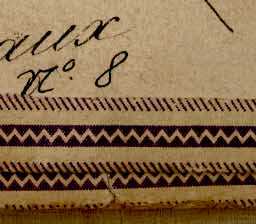 aux
Nº. 8